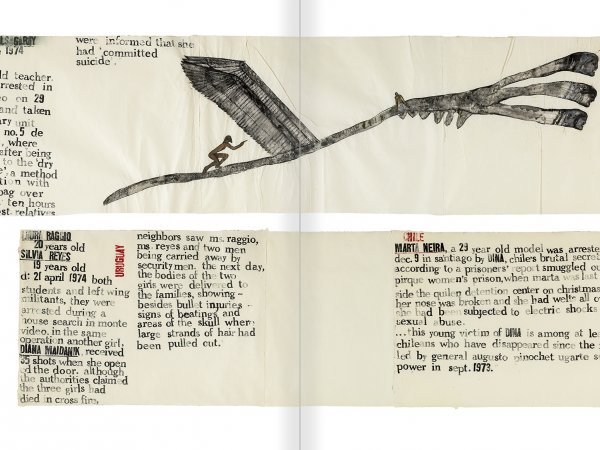 1974
ld teacher
arrested in
eo on 29
and taken
ary unit
no.5 de
, where
after being
to the 'dry
e', a method
tion with
bag over
ten hours
est relatives
were informed that she
had 'committed
suicide'.
LAURA RAGGIO
20 years old
SILVIA REYES
19 years old
d: 21 april 1974 both
students and left wing
militants, they were
arrested during a
house search in monte
video, in the same
operation another girl,
DIANA MAIDANIK, received
35 shots when she open
ed the door. although
the authorities claimed
the three girls had
died in cross fire,
URUGUAY
neighbors saw ms. raggio,
ms. reyes and two men
being carried away by
security men. the next day,
the bodies of the two
girls were delivered to
the families, showing -
besides bullet injuries -
signs of beatings and
areas of the skull where
large strands of hair had
been pulled out.
CHILE
MARTA NEIRA, a 29 year old model was arreste
dec. 9 in santiago by DINA, chile's brutal secret
according to a prisoners' report smuggled ou
pirque women's prison, when marta was last
side the quilen detention center on christmas
her nose was broken and she had welts all o
she had been subjected to electric shocks
sexual abuse.
...'this young victim of DINA is among at lea
chileans who have disappeared since the
led by general augusto pinochet ugarte s
power in sept. 1973.